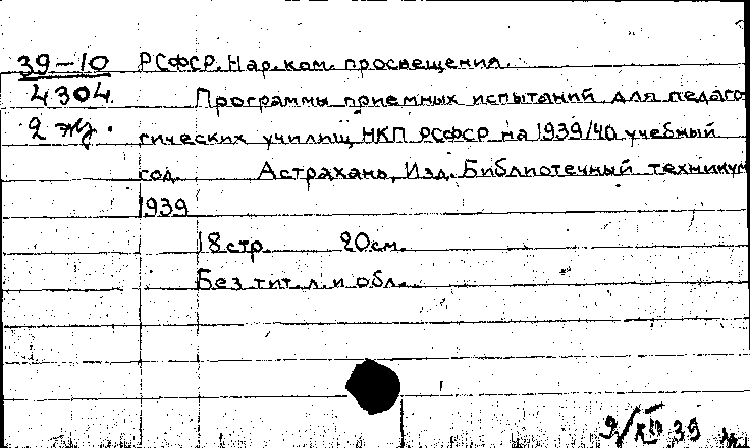 39-10 РСФСР. Нар. ком. просвещения.
4304 Программы приемных испытаний для педаго
2 экз. гических училищ НКП РСФСР на 1939/40 учебный
год. Астрахань, Изд. Библиотечный техникум
1939
18 стр. 20 см.
Без тит. л. и обл.
9/XII 39